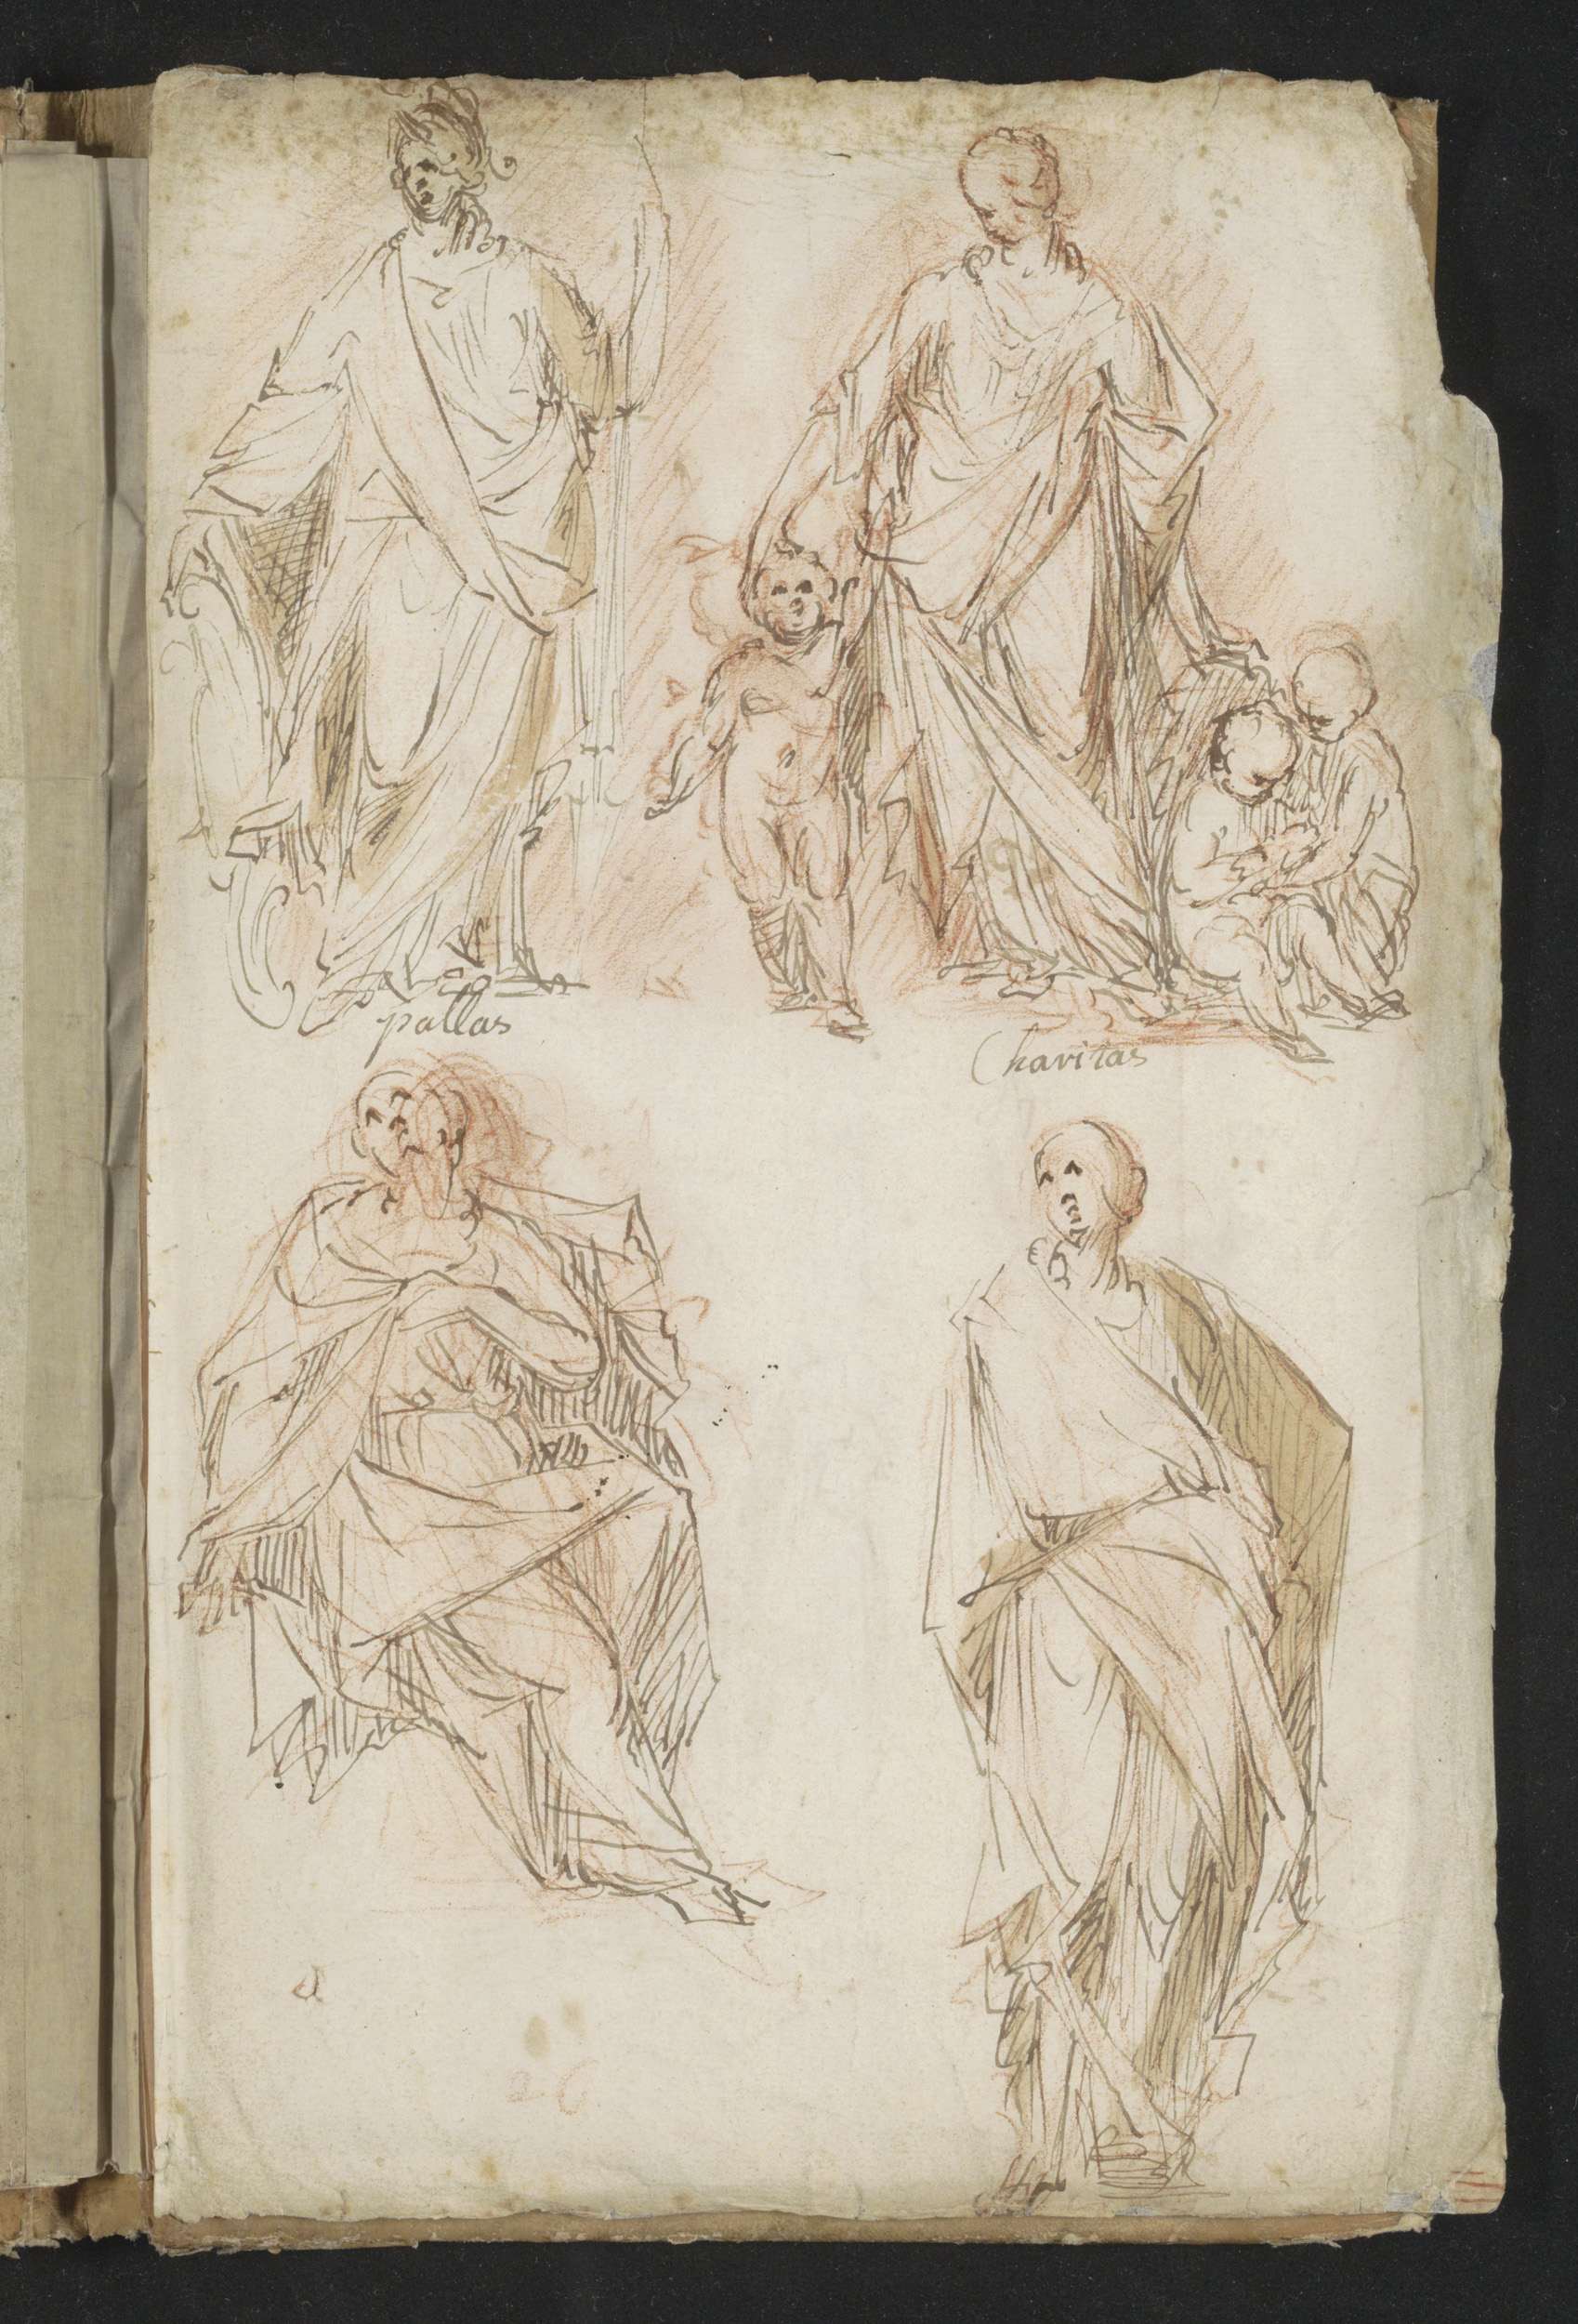 pallas
Charitas